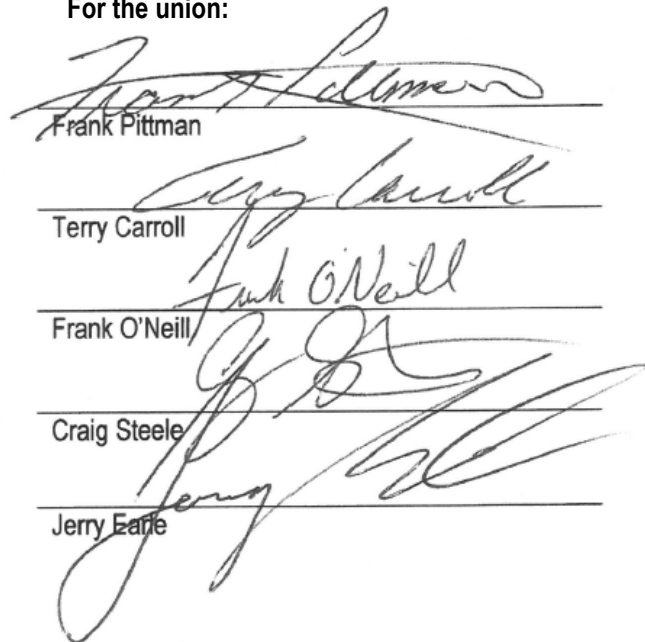 For the union:
Frank Pittman
Frank Pittman
Terry Carroll
Terry Carroll
Frank O'Neill
Frank O'Neill
Craig Steele
Jerry
Jerry Earle